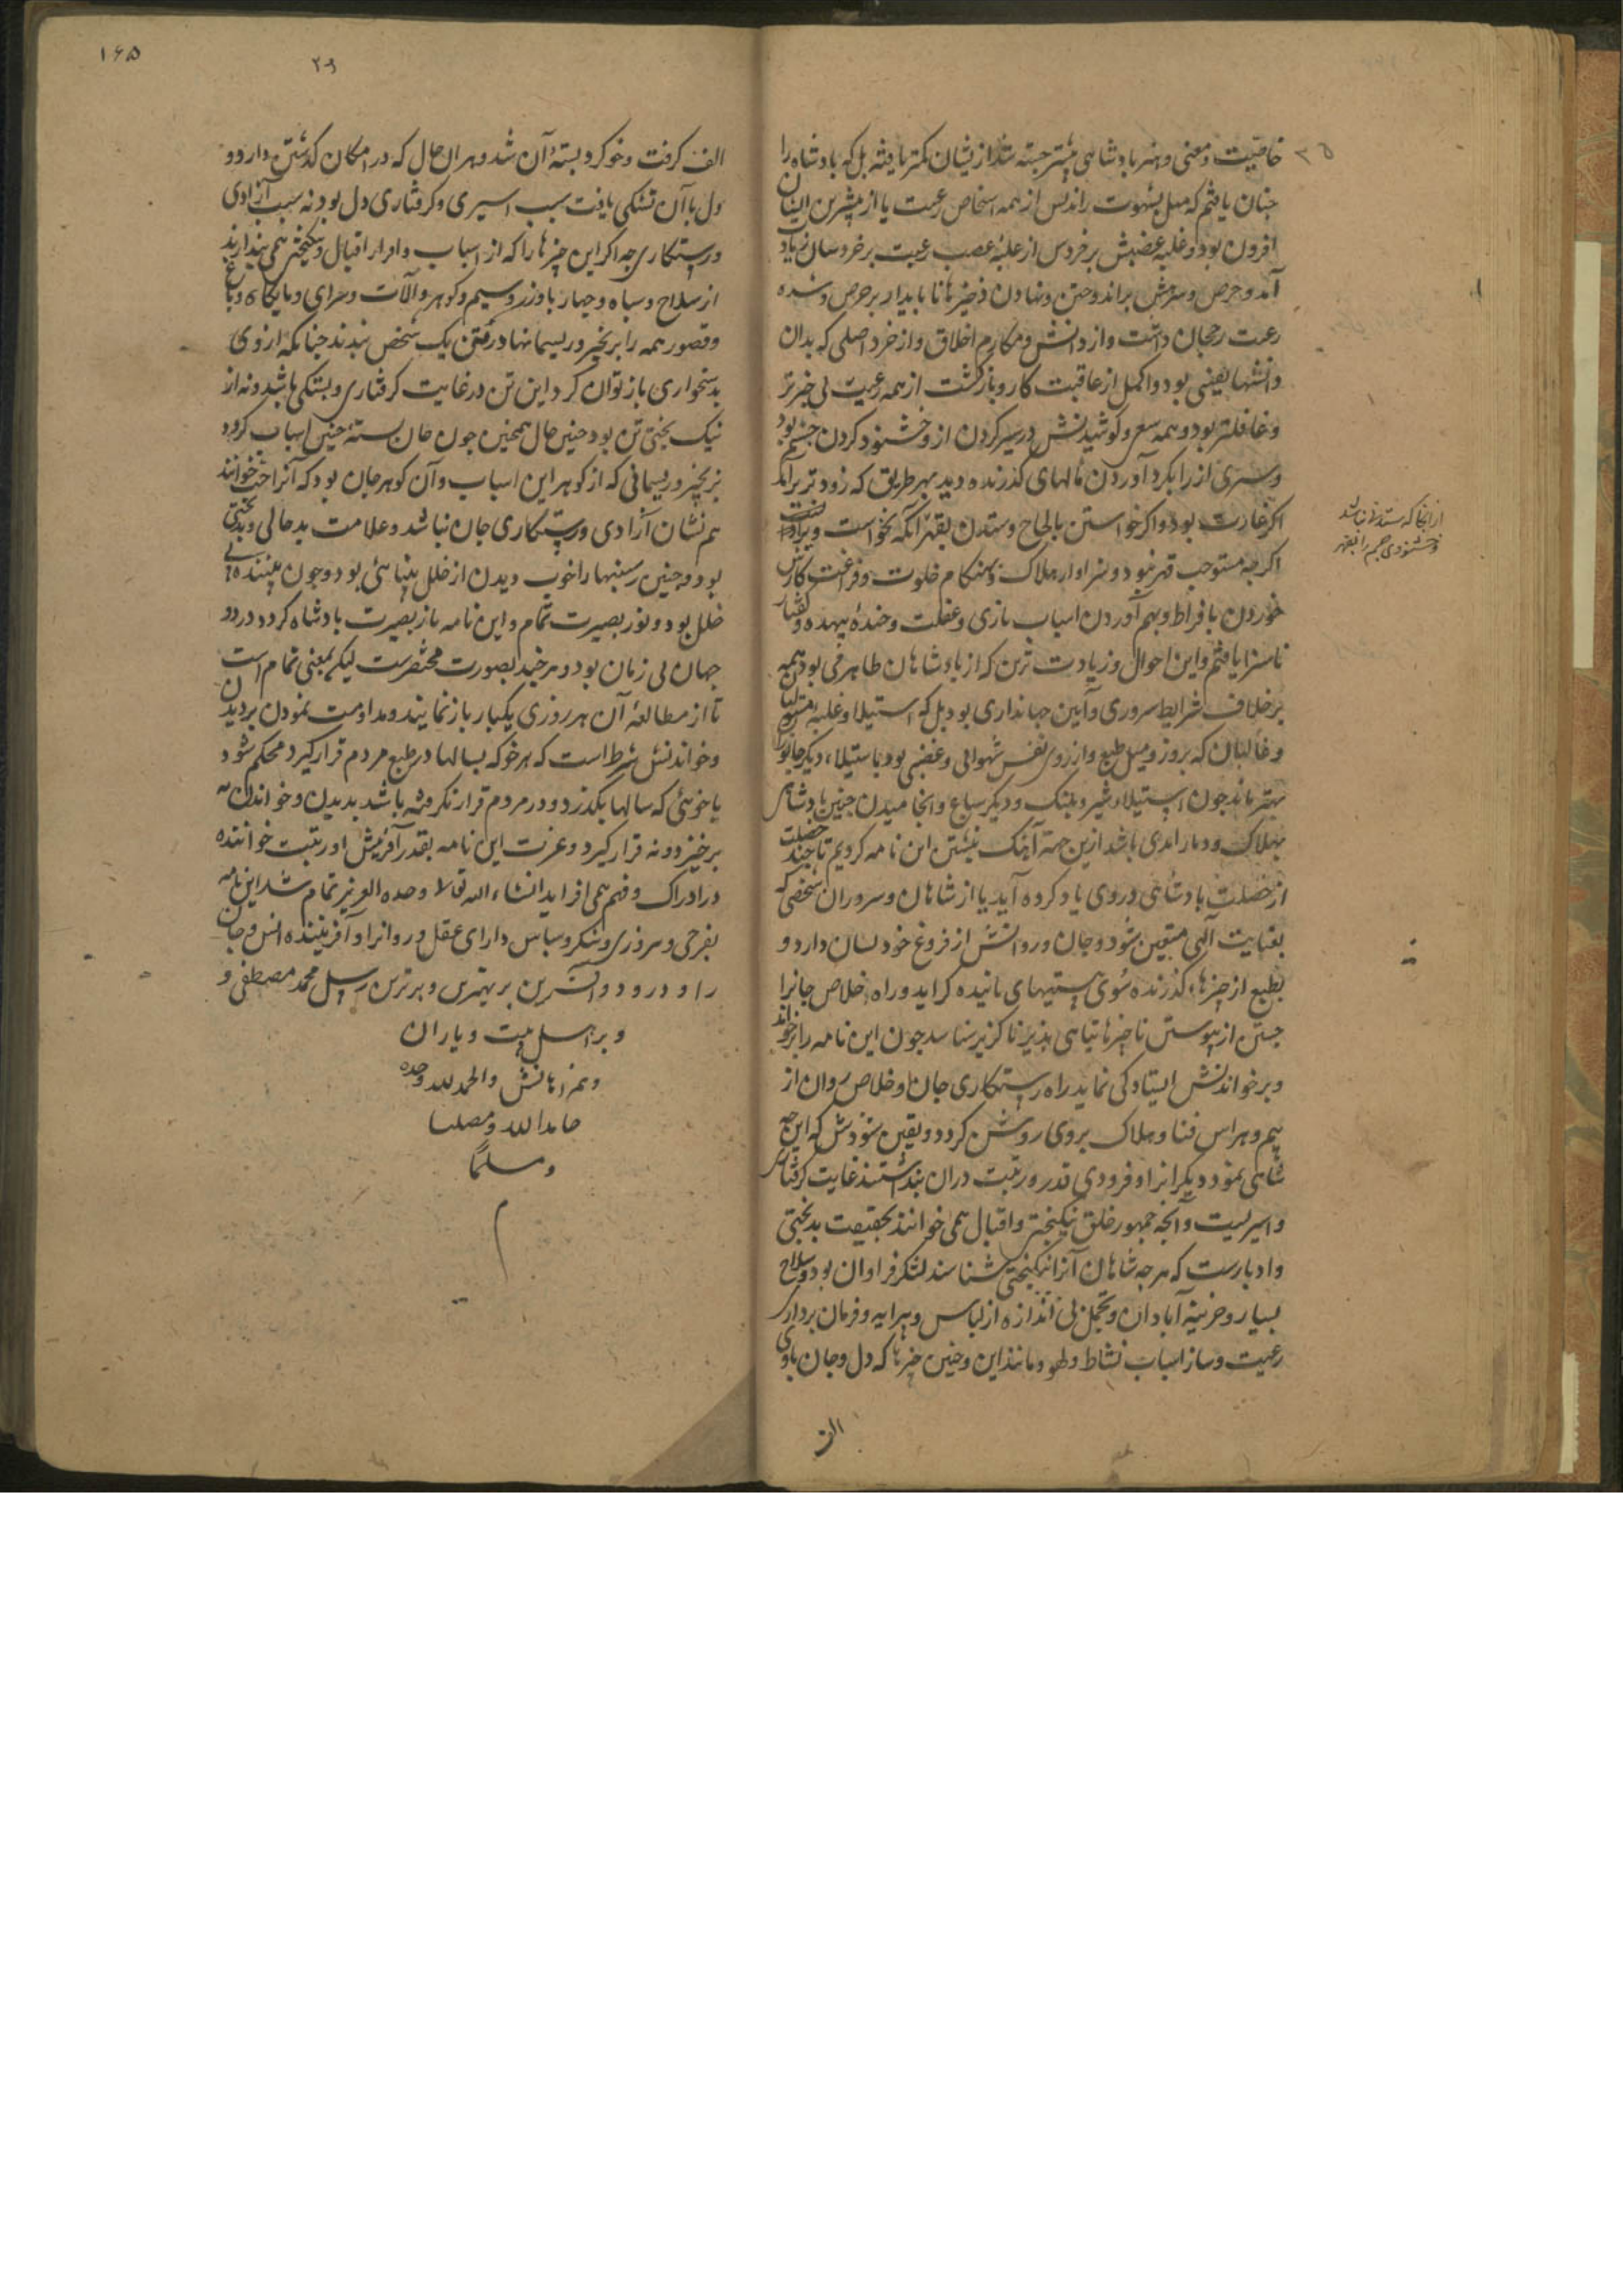 خاصیت و معنی و هنر پادشاهی بیشتر جسته شد از ایشان کمتر یافته بل که پادشاه را
چنان یافتم که میل بشهوت راندنش از همه اشخاص رعیت یا از بیشترین ایشان
افزون بود و غلبه غضبش بر خردش از غلبه غضب رعیت بر خردشان زیاد
آمد و حرص و شرهش براندوختن و نهادن ذخیرهای ناپایدار بر حرص و شره
رعیت رجحان داشت و از دانش و مکارم اخلاق و از خرد اصلی که بدان
دانشها یقینی بود و اکمل از عاقبت کار و بازگشت از همه رعیت بی خبرتر
و غافلتر بود و همه سعی و کوشیدنش در سیر کردن آز و خشنود کردن خشم بود
و سیری آز را بگرد آوردن مالهای گذرنده دید بهر طریق که زودتر برآمد
اگر غارت بود و اگر خواستن بالحاح و ستدن بقهر آنکه نخواست
از آنجا که ستدنی نباشد
و خشنودی خشم را بقهر
اگرچه مستوجب قهر نبود و سزاوار هلاک و هنگام خلوت و فراغت کارش
خوردن بافراط و بهم آوردن اسباب بازی و غفلت و خنده بیهده و گفتار
ناسزا یافتم و این احوال و زیادت ترین که از پادشاهان ظاهر می بود همه
برخلاف شرایط سروری و آیین جهانداری بود بل که استیلا و غلبه
و غالبان که بروز و میل طبع و از روی نفس شهوانی و غضبی بود باستیلای دیگر جانوران
بهتر ماند چون استیلای شیر و پلنگ و دیگر سباع و انجامیدن چنین پادشاهی
بهلاک و دمار ابدی باشد ازین جهة آهنگ نبشتن این نامه کردیم تا چند خصلت
از خصلت پادشاهی در وی یاد کرده آید تا از شاهان و سروران شخصی که
بعنایت الهی متعین شود و جان و روانش از فروغ خود نسان دارد و
بطبع از چیزهای گذرنده سوی هستیهای پاینده گراید و راه خلاص جانرا
جستن از پیوستن تا چیزهای تباهی پذیر ناگزیر شناسد چون این نامه را برخواند
و برخواندنش ایستادگی نماید راه رستگاری جان و خلاص روان از
بیم و هراس فنا و هلاک بروی روشن گردد و یقین شودش که این چه
شاهی نمود و دیگرانرا و فزودی قدر و رتبت دران پنداشتند غایت گرفتاری
و اسیریست و آنچه جمهور خلق نیکبختی و اقبال همی خوانند بحقیقت بدبختی
و ادبارست که هرچه شاهان آنرا نیکبختی شناسند لشکر فراوان بود و سلاح
بسیار و خزینه آبادان و تجمل بی اندازه از لباس و پیرایه و فرمان برداری
رعیت و ساز اسباب نشاط و لهو و مانند این و چنین چیزها که دل و جان با وی
الف
۱۶۵
۲۹
الف گرفت و خو کرد و بسته آن شد و هر آن حال که در امکان گذشتن دارد و
دل با آن بستگی یافت سبب اسیری و گرفتاری دل بود نه سبب آزادی
و رستگاری چه اگر این چیزها را که از اسباب و ادرار اقبال و نیکبختی همی پندارند
از سلاح و سپاه و چهارپا و زر و سیم و گوهر و آلات و سرای و پایگاه و باغ
و قصور همه را برنجیر و ریسمانها در گفتن یک شخص بندند چنانکه از وی
بدشخواری باز توان کرد این تن در غایت گرفتاری و بستگی باشد و نه از
نیک بختی تن بود چنین حال همچنین چون جان بسته چنین اسباب گردد
بزنجیر و ریسمانی که از گوهر این اسباب و آن گوهر جان بود که آنرا خوانند
هم نشان آزادی و رستگاری جان نباشد و علامت بدحالی و بدبختی
بود و چنین بستنیها را خوب دیدن از خلل بینائی بود و چون بیننده بی
خلل بود و نور بصیرت تمام و این نامه باز بصیرت پادشاه گردد در دو
جهان بی زیان بود و هرچند بصورت مختصرست لیکن بمعنی تمام است
تا از مطالعه آن هر روزی یکبار باز نمانند و مداومت نمودن بر دیدن
و خواندنش شرط است که هر خو که بسالها در طبع مردم قرار گیرد محکم شود
یا خوئی که سالها بگذرد و در مردم قرار نگرفته باشد بدیدن و خواندن نه
برخیزد و نه قرار گیرد و عزت این نامه بقدر آفرینش او رتبت خواننده
در ادراک و فهم همی افزاید انشاء الله تعالا وحده العزیز تمام شد این نامه
بفرخی و سروری و شکر و سپاس دارای عقل و روانرا و آفریننده انس و جان
را و درود و آفرین بر بهترین و برترین رسل محمد مصطفی و
و بر اهل بیت و یاران
و همراهانش والحمد لله وحده
حامدا لله و مصلیا
و مسلما